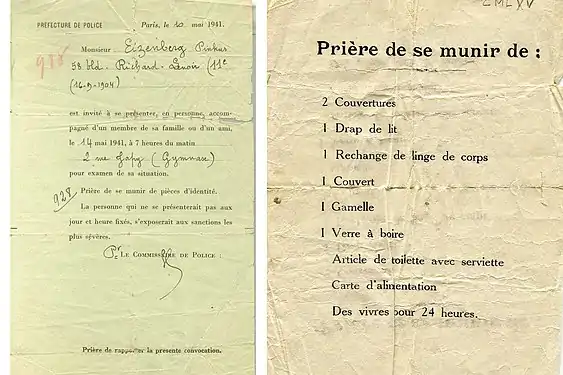 PREFECTURE DE POLICE
Paris, le 10 mai 1941.
Monsieur Eizenberg Pinkus
58 bld. Richard-Lenoir (11e
(16-9-1904)
est invité à se présenter, en personne, accom-
pagné d'un membre de sa famille ou d'un ami,
le 14 mai 1941, à 7 heures du matin
2 rue Japy (Gymnase)
pour examen de sa situation.
928
Prière de se munir de pièces d'identité.
La personne qui ne se présenterait pas aux
jour et heure fixés, s'exposerait aux sanctions les
plus sévères.
Pr LE COMMISSAIRE DE POLICE
Prière de rapporter la présente convocation.
Prière de se munir de :
2 Couvertures
1 Drap de lit
1 Rechange de linge de corps
1 Couvert
1 Gamelle
1 Verre à boire
Article de toilette avec serviette
Carte d'alimentation
Des vivres pour 24 heures.